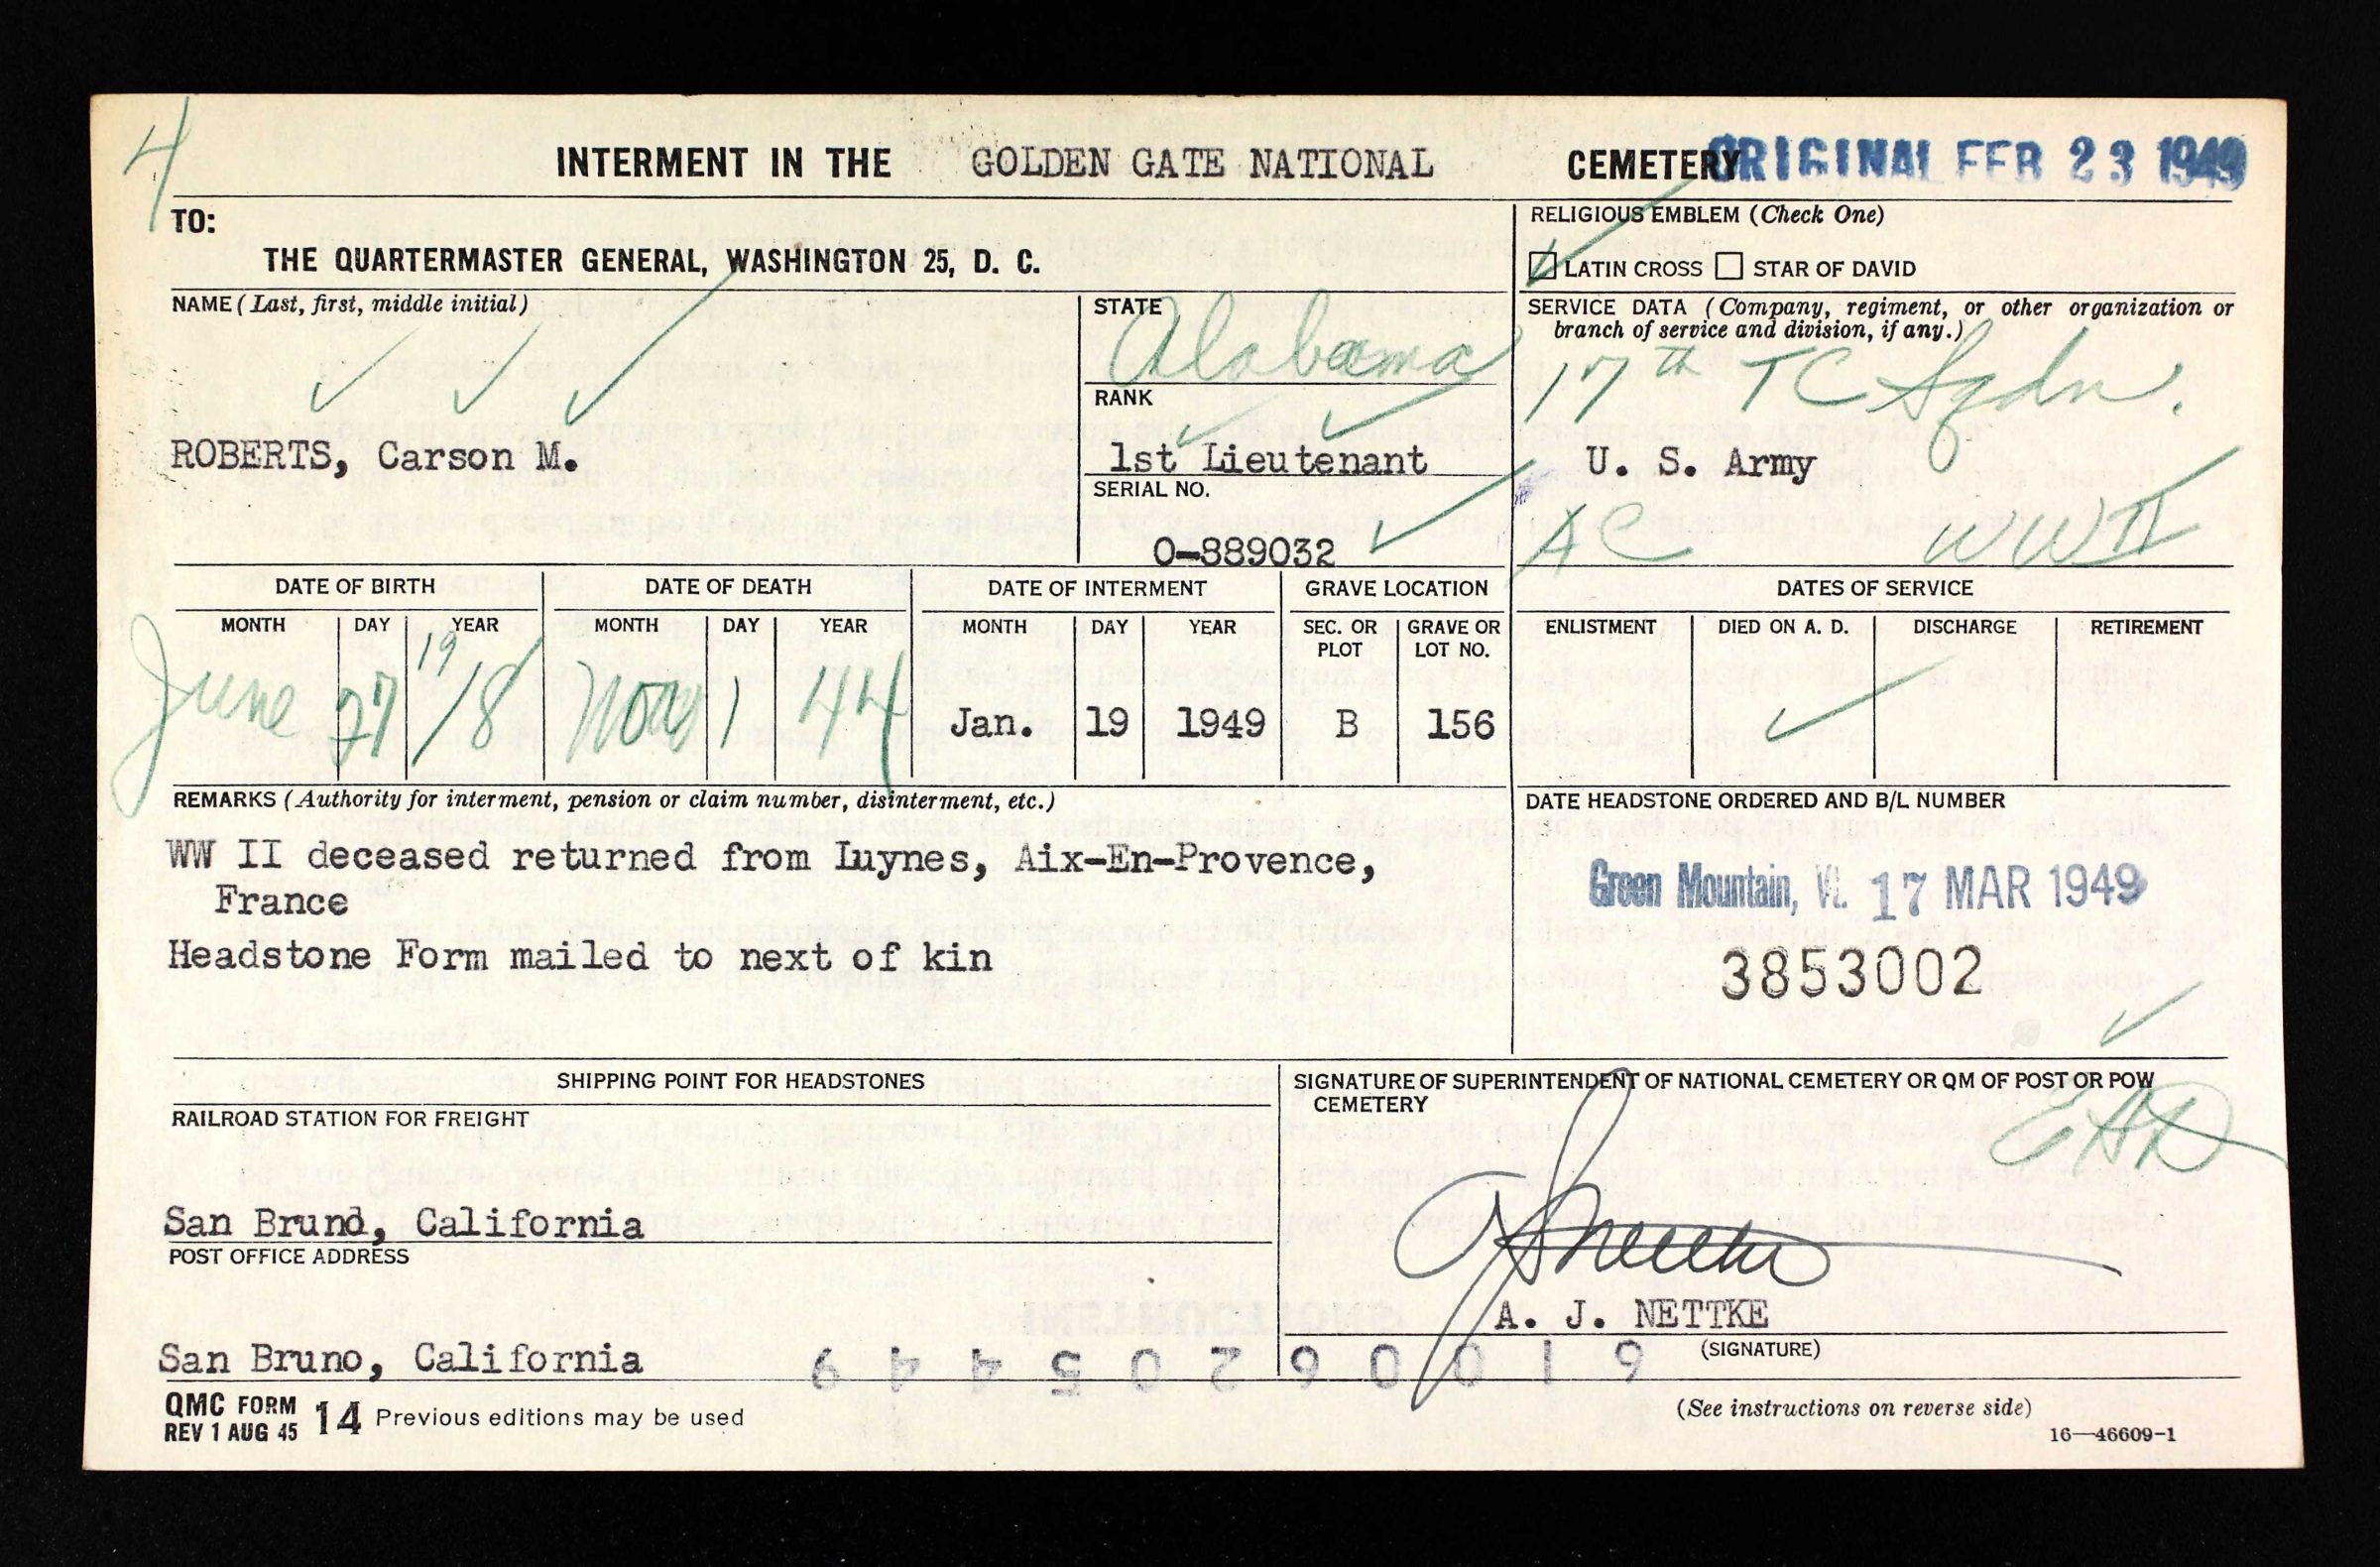 4
INTERMENT IN THE GOLDEN GATE NATIONAL CEMETERY
ORIGINAL FEB 23 1949
TO:
THE QUARTERMASTER GENERAL, WASHINGTON 25, D. C.
RELIGIOUS EMBLEM (Check One)
LATIN CROSS STAR OF DAVID
NAME (Last, first, middle initial)
ROBERTS, Carson M.
STATE
Alabama
RANK
1st Lieutenant
SERIAL NO.
O-889032
SERVICE DATA (Company, regiment, or other organization or
branch of service and division, if any.)
17th TC Sqdn.
U. S. Army
AC WWII
DATE OF BIRTH
MONTH DAY YEAR
June 27 1918
DATE OF DEATH
MONTH DAY YEAR
Nov 1 44
DATE OF INTERMENT
MONTH DAY YEAR
Jan. 19 1949
GRAVE LOCATION
SEC. OR PLOT GRAVE OR LOT NO.
B 156
DATES OF SERVICE
ENLISTMENT DIED ON A. D. DISCHARGE RETIREMENT
REMARKS (Authority for interment, pension or claim number, disinterment, etc.)
WW II deceased returned from Luynes, Aix-En-Provence,
France
Headstone Form mailed to next of kin
DATE HEADSTONE ORDERED AND B/L NUMBER
Green Mountain, Vt. 17 MAR 1949
3853002
SHIPPING POINT FOR HEADSTONES
RAILROAD STATION FOR FREIGHT
San Bruno, California
POST OFFICE ADDRESS
San Bruno, California
SIGNATURE OF SUPERINTENDENT OF NATIONAL CEMETERY OR QM OF POST OR POW
CEMETERY
A. J. NETTKE
(SIGNATURE)
QMC FORM 14 Previous editions may be used
REV 1 AUG 45
(See instructions on reverse side)
16—46609-1